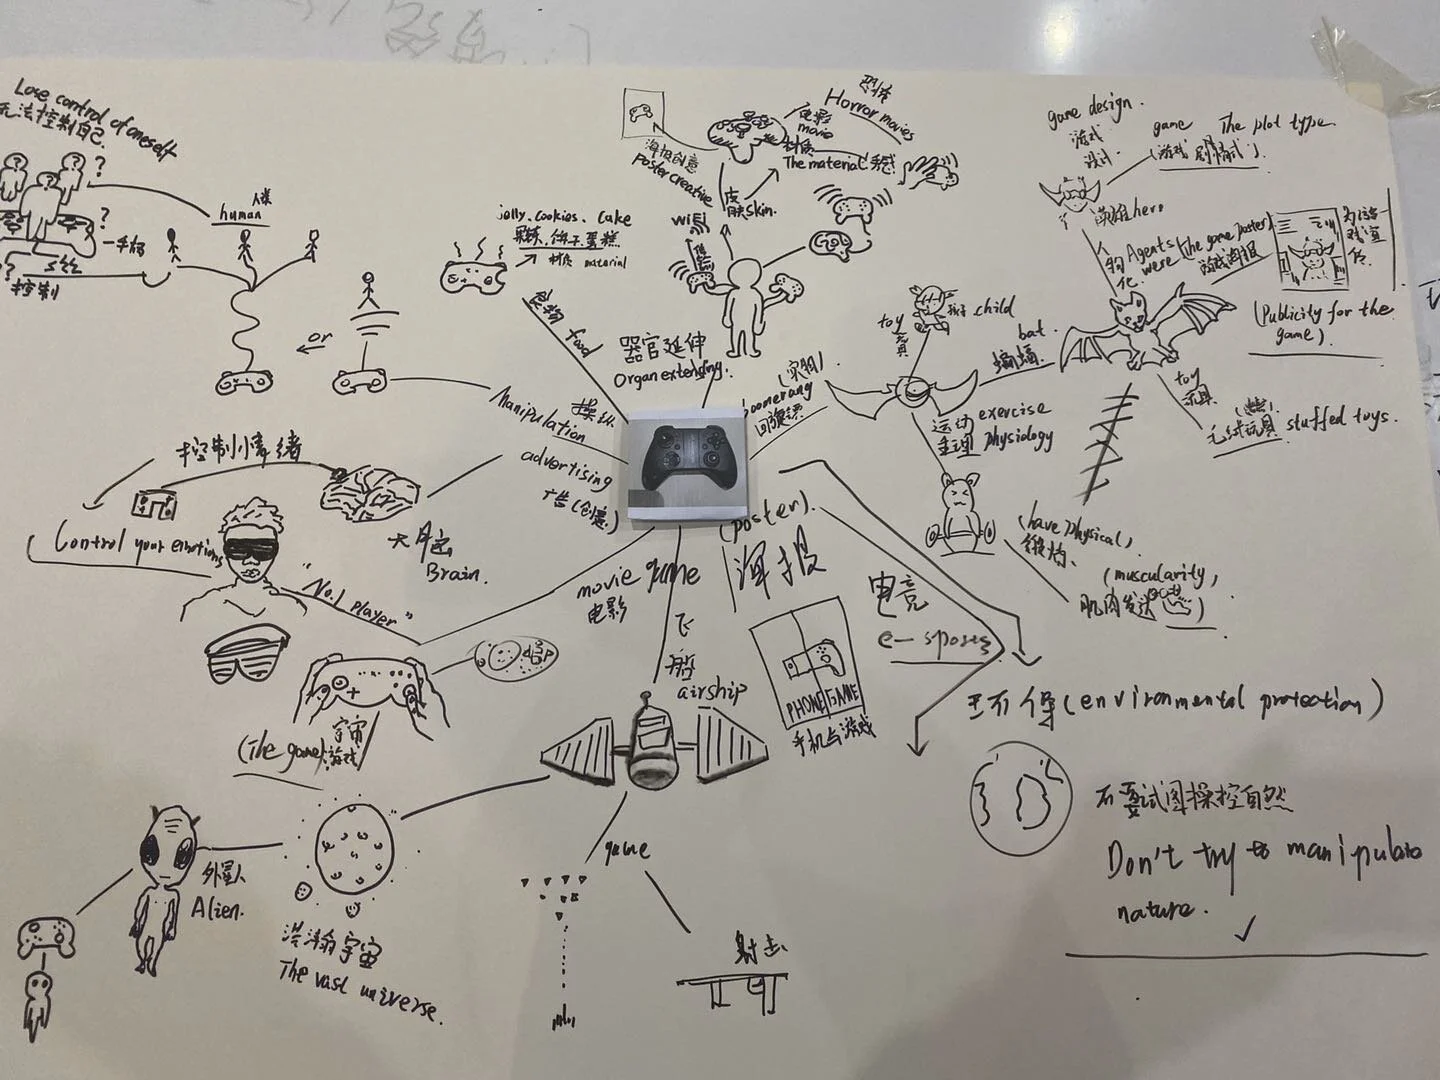 Lose control of oneself
无法控制自己
?
?
?
一手柄
控制
human
人类
or
Manipulation
操纵
食物 food
jelly. cookies. cake
果冻. 饼干. 蛋糕
材质 material
海报创意
poster creative
电影
movie
恐怖
Horror movies
材质
The material 手感
皮肤 skin.
wifi
器官延伸
Organ extending.
boomerang (实物)
回旋镖
toy
玩具
孩子 child
bat.
蝙蝠.
game design.
游戏
设计.
game
The plot type.
英雄 hero
人物化.
Agents
were
(The game poster)
游戏海报
(Publicity for the
game).
toy
玩具
毛绒玩具 stuffed toys.
运动 exercise
生理 physiology
(have physical).
锻炼.
(muscularity,
肌肉发达
advertising
广告(创意.)
控制情绪
Control your emotions
大脑
Brain.
"No.1 player"
movie game
电影
(poster).
海报
PHONE GAME
手机与游戏
电竞
e-sports
飞船
airship
宇宙
(The game) 游戏
外星人
Alien.
浩瀚宇宙
The vast universe.
game
射击
(environmental protection)
不要试图操控自然
Don't try to manipulate
nature.